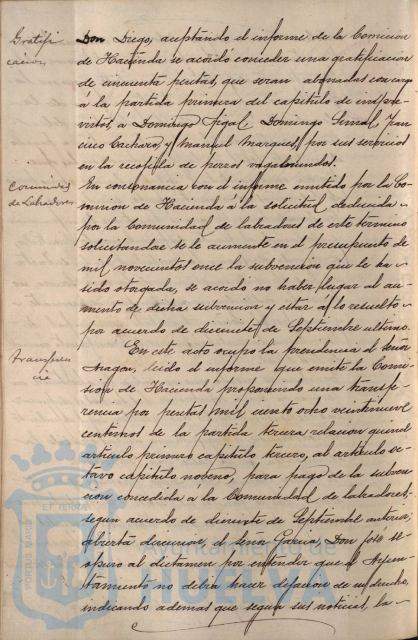 Gratifi
cación
Don Diego, aceptando el informe de la Comision
de Hacienda se acordó conceder una gratificacion
de cincuenta pesetas, que seran abonadas con cargo
á la partida primera del capitulo de impre-
vistos, á Domingo Domingo Fran
cisco y Manuel Marquez por sus servicios
en la recogida de perros vagabundos.
Comunidad
de Labradores
En consonancia con el informe emitido por la Co
mision de Hacienda á la solicitud deducida
por la Comunidad de labradores de este termino
solicitandose se le aumente en el presupuesto de
mil novecientos once la subvencion que le ha
sido otorgada, se acordó no haber lugar al au-
mento de dicha subvencion y estar á lo resuelto
por acuerdo de diecisiete de Septiembre ultimo.
Transferen
cia
En este acto ocupo la presidencia el señor
Aragon, leido el informe que emite la Comi
sion de Hacienda proponiendo una transfe
rencia por pesetas mil ciento ocho veintinueve
centimos de la partida tercera relacion quince
articulo primero capitulo tercero, al articulo oc
tavo capitulo noveno, para pago de la subven
cion concedida a la Comunidad de labradores,
segun acuerdo de diecisiete de Septiembre anterior
abierta discusion, el señor Garcia, Don Jose se
opuso al dictamen por entender que el Ayun
tamiento no debia hacer dejacion de su derecho,
indicando ademas que segun sus noticias, la
PORTUS MARIS
ET TERRAE
Ayuntamiento de
HUELVA